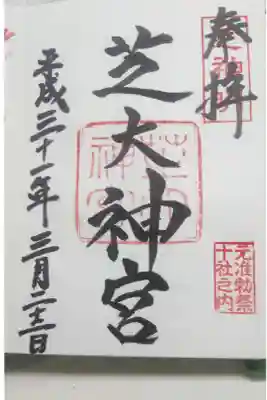 奉拝
元准勅祭
十社之内
芝大神宮
平成三十一年三月二十二日